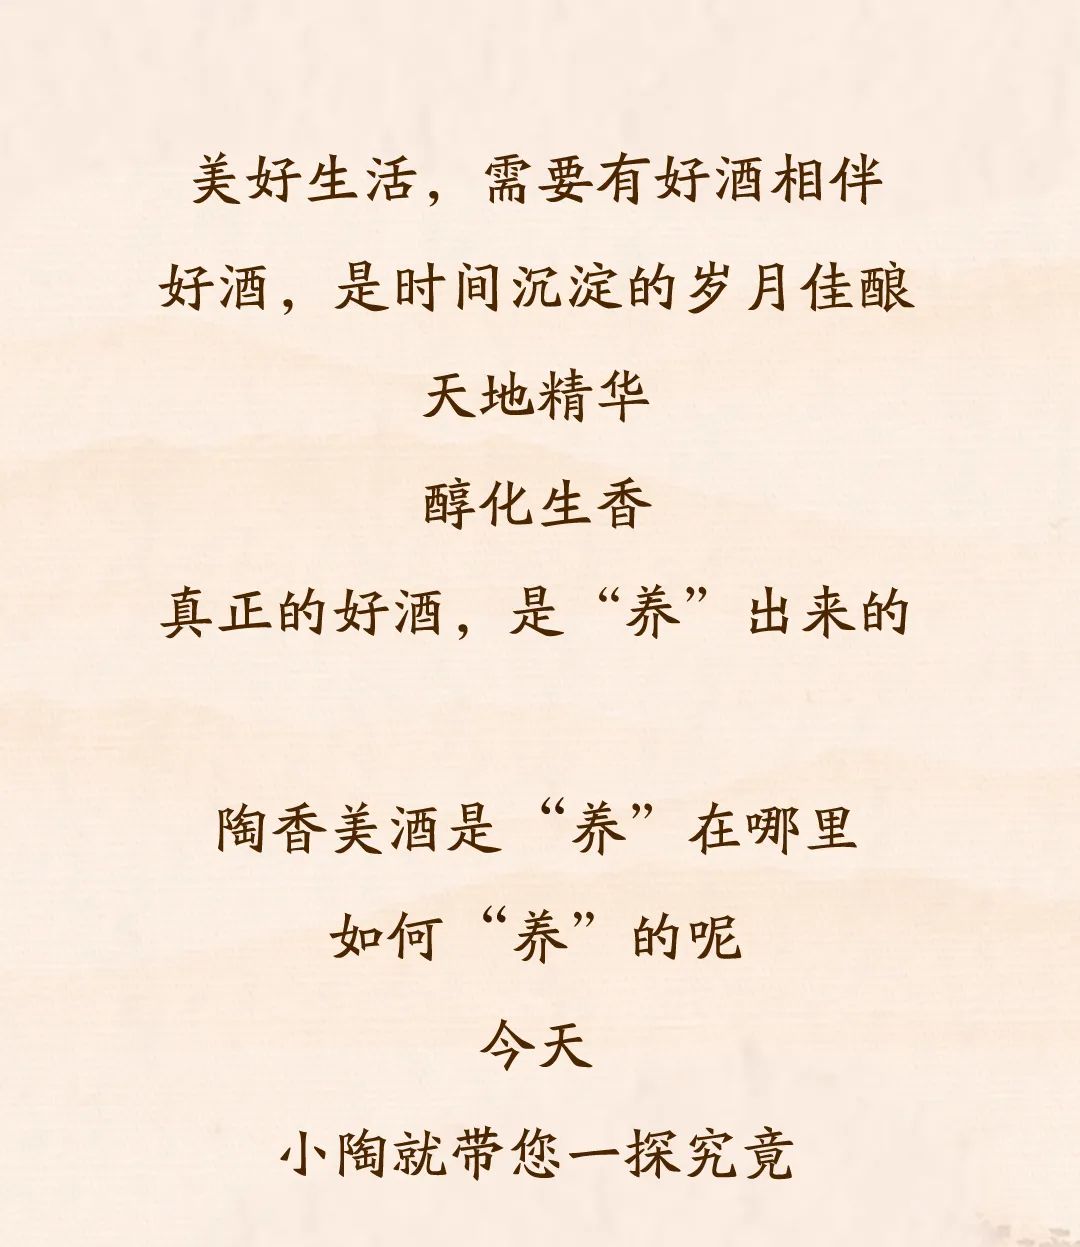 美好生活，需要有好酒相伴
好酒，是时间沉淀的岁月佳酿
天地精华
醇化生香
真正的好酒，是“养”出来的
陶香美酒是“养”在哪里
如何“养”的呢
今天
小陶就带您一探究竟